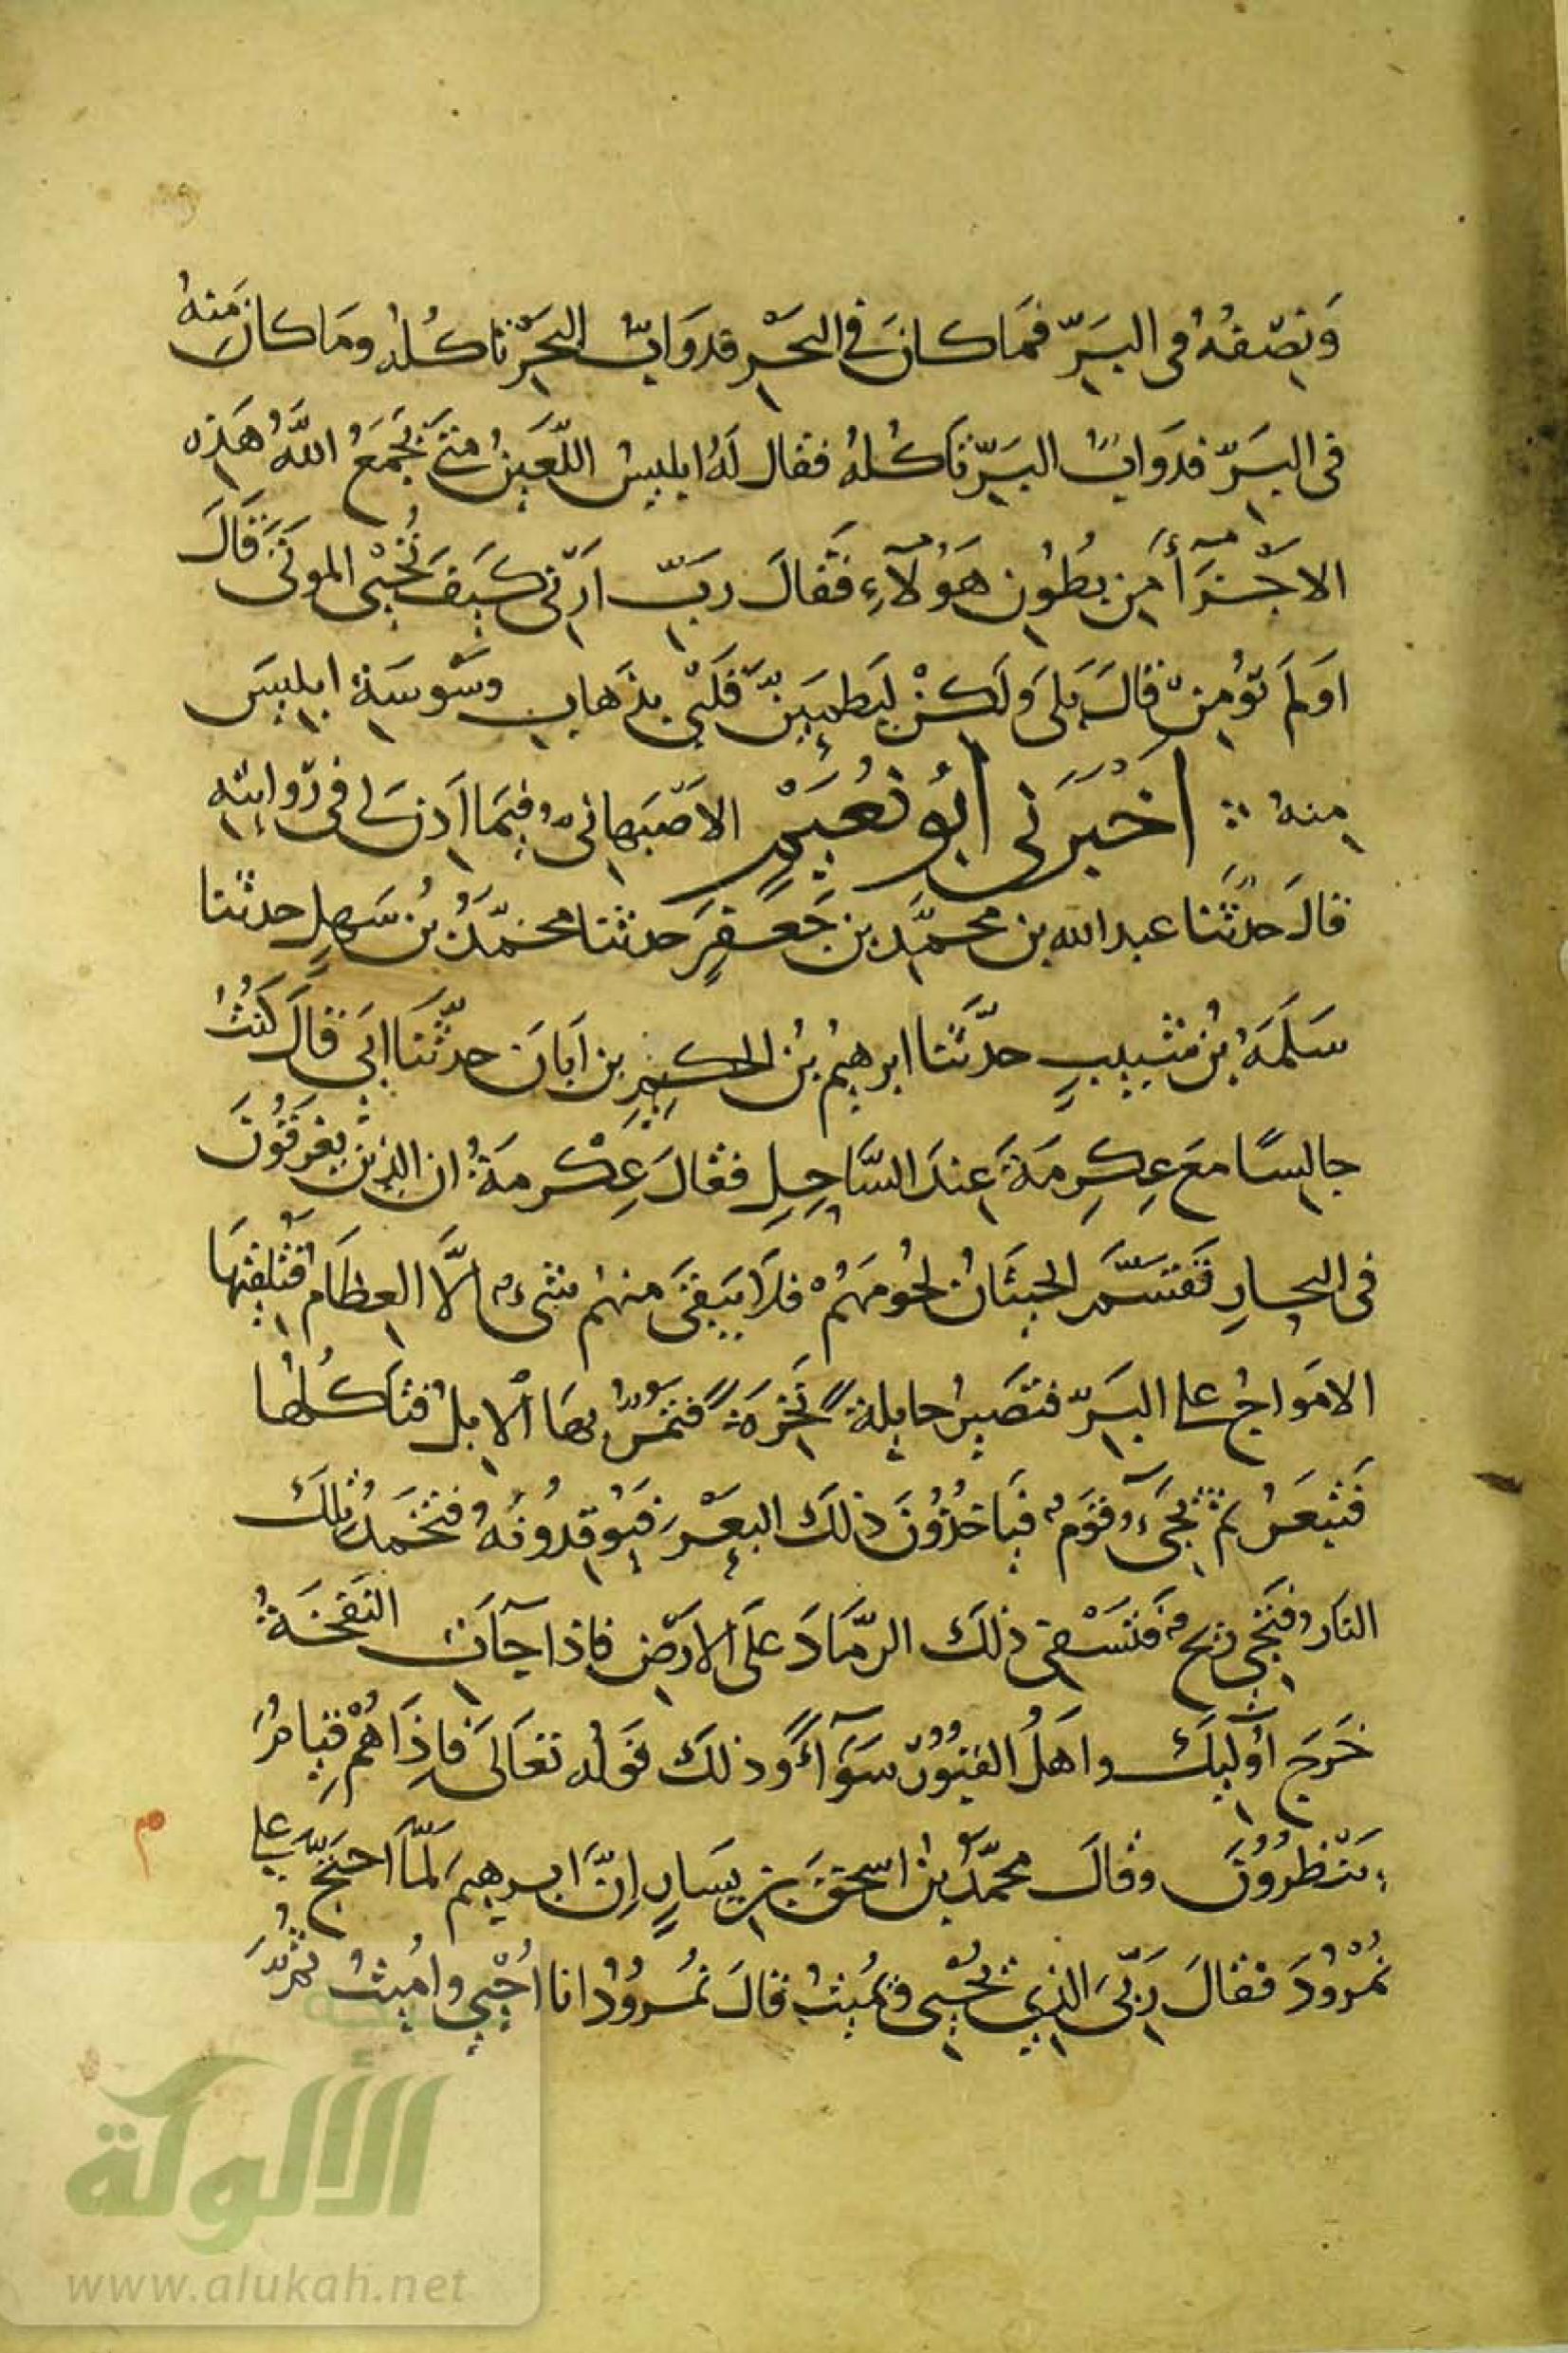 وَنِصْفُهُ فى البَرِّ فمَا كانَ فى البَحْرِ فدَوَابُّ البَحْرِ تاكُلهُ ومَا كانَ مِنهُ
فى البَرِّ فدَوابُّ البَرِّ تَاكُلهُ فقال لَهُ ابليسُ اللَّعِينُ مَتَى يَجْمَعُ اللَّهُ هَذِه
الاجْزَآأَ مِن بُطُونِ هَؤُلآءِ فَقَالَ رَبِّ ارِنى كَيفَ تُحْيى الموتَى قَالَ
اوَلَم تؤمِنْ قالَ بَلَى وَلَكِنْ لِيَطمِينَّ قَلبى بذَهابِ وسْوسَةِ ابليسَ
مِنهُ ∴ اخْبَرَنى ابُو نُعَيْمٍ الاصْبَهانىُّ فِيمَا اذِنَ لى فى رِوايتِه
قالَ حَدثَنا عبد الله بن محمَّدِ بن جَعفَرٍ حدثنا محمّدُ بنُ سَهلٍ حدثنا
سَلَمَةُ بنُ شَبيبٍ حدَّثنا ابرهيمُ بنُ الحكمِ بن ابَانَ حدثَنَا ابى قَالَ كنتُ
جالسًا معَ عِكرِمَةَ عِندَ السَّاحِلِ فقالَ عِكْرمَةُ ان الذِينَ يغرَقُونَ
فى البحارِ تَقْتَسِمُ الحيتَانُ لحُومَهُمْ فلَا يَبقَى مِنهُم شىءٌ الَّا العِظَامُ فتُلقِيهَا
الامْوَاجُ على البَرِّ فتَصِيرُ حايلةً نَخِرَةً فتمُرُّ بهَا الابلُ فتاكلُهَا
فَتبعَرُ ثم يَجىءُ قَومٌ فيَاخذُونَ ذلكَ البَعْرَ فيُوقِدُونَهُ فتخمَدُ تلكَ
النارُ فتَجى رِيحٌ فَتَسْقى ذلكَ الرَّمَادَ علَى الارْضِ فاذا جآَت النفخَةُ
خَرَجَ اُولَيكَ واهَلُ القبُورِ سَوَآءً وذلكَ قولُه تعَالَى فاِذَا هُمْ قِيامٌ
يَنْظُرُونَ وقالَ محمّدُ بنُ اسحقَ بن يَسَارٍ اِنَّ ابرهيمَ لَمَّا احتجَّ على
نُمْرُودَ فقالَ رَبّىَ الذِى يُحيى ويُمِيتُ قالَ نمُرودُ انا اُحْيى وامُيتُ ثُمَّ
م
الألوكة
www.alukah.net